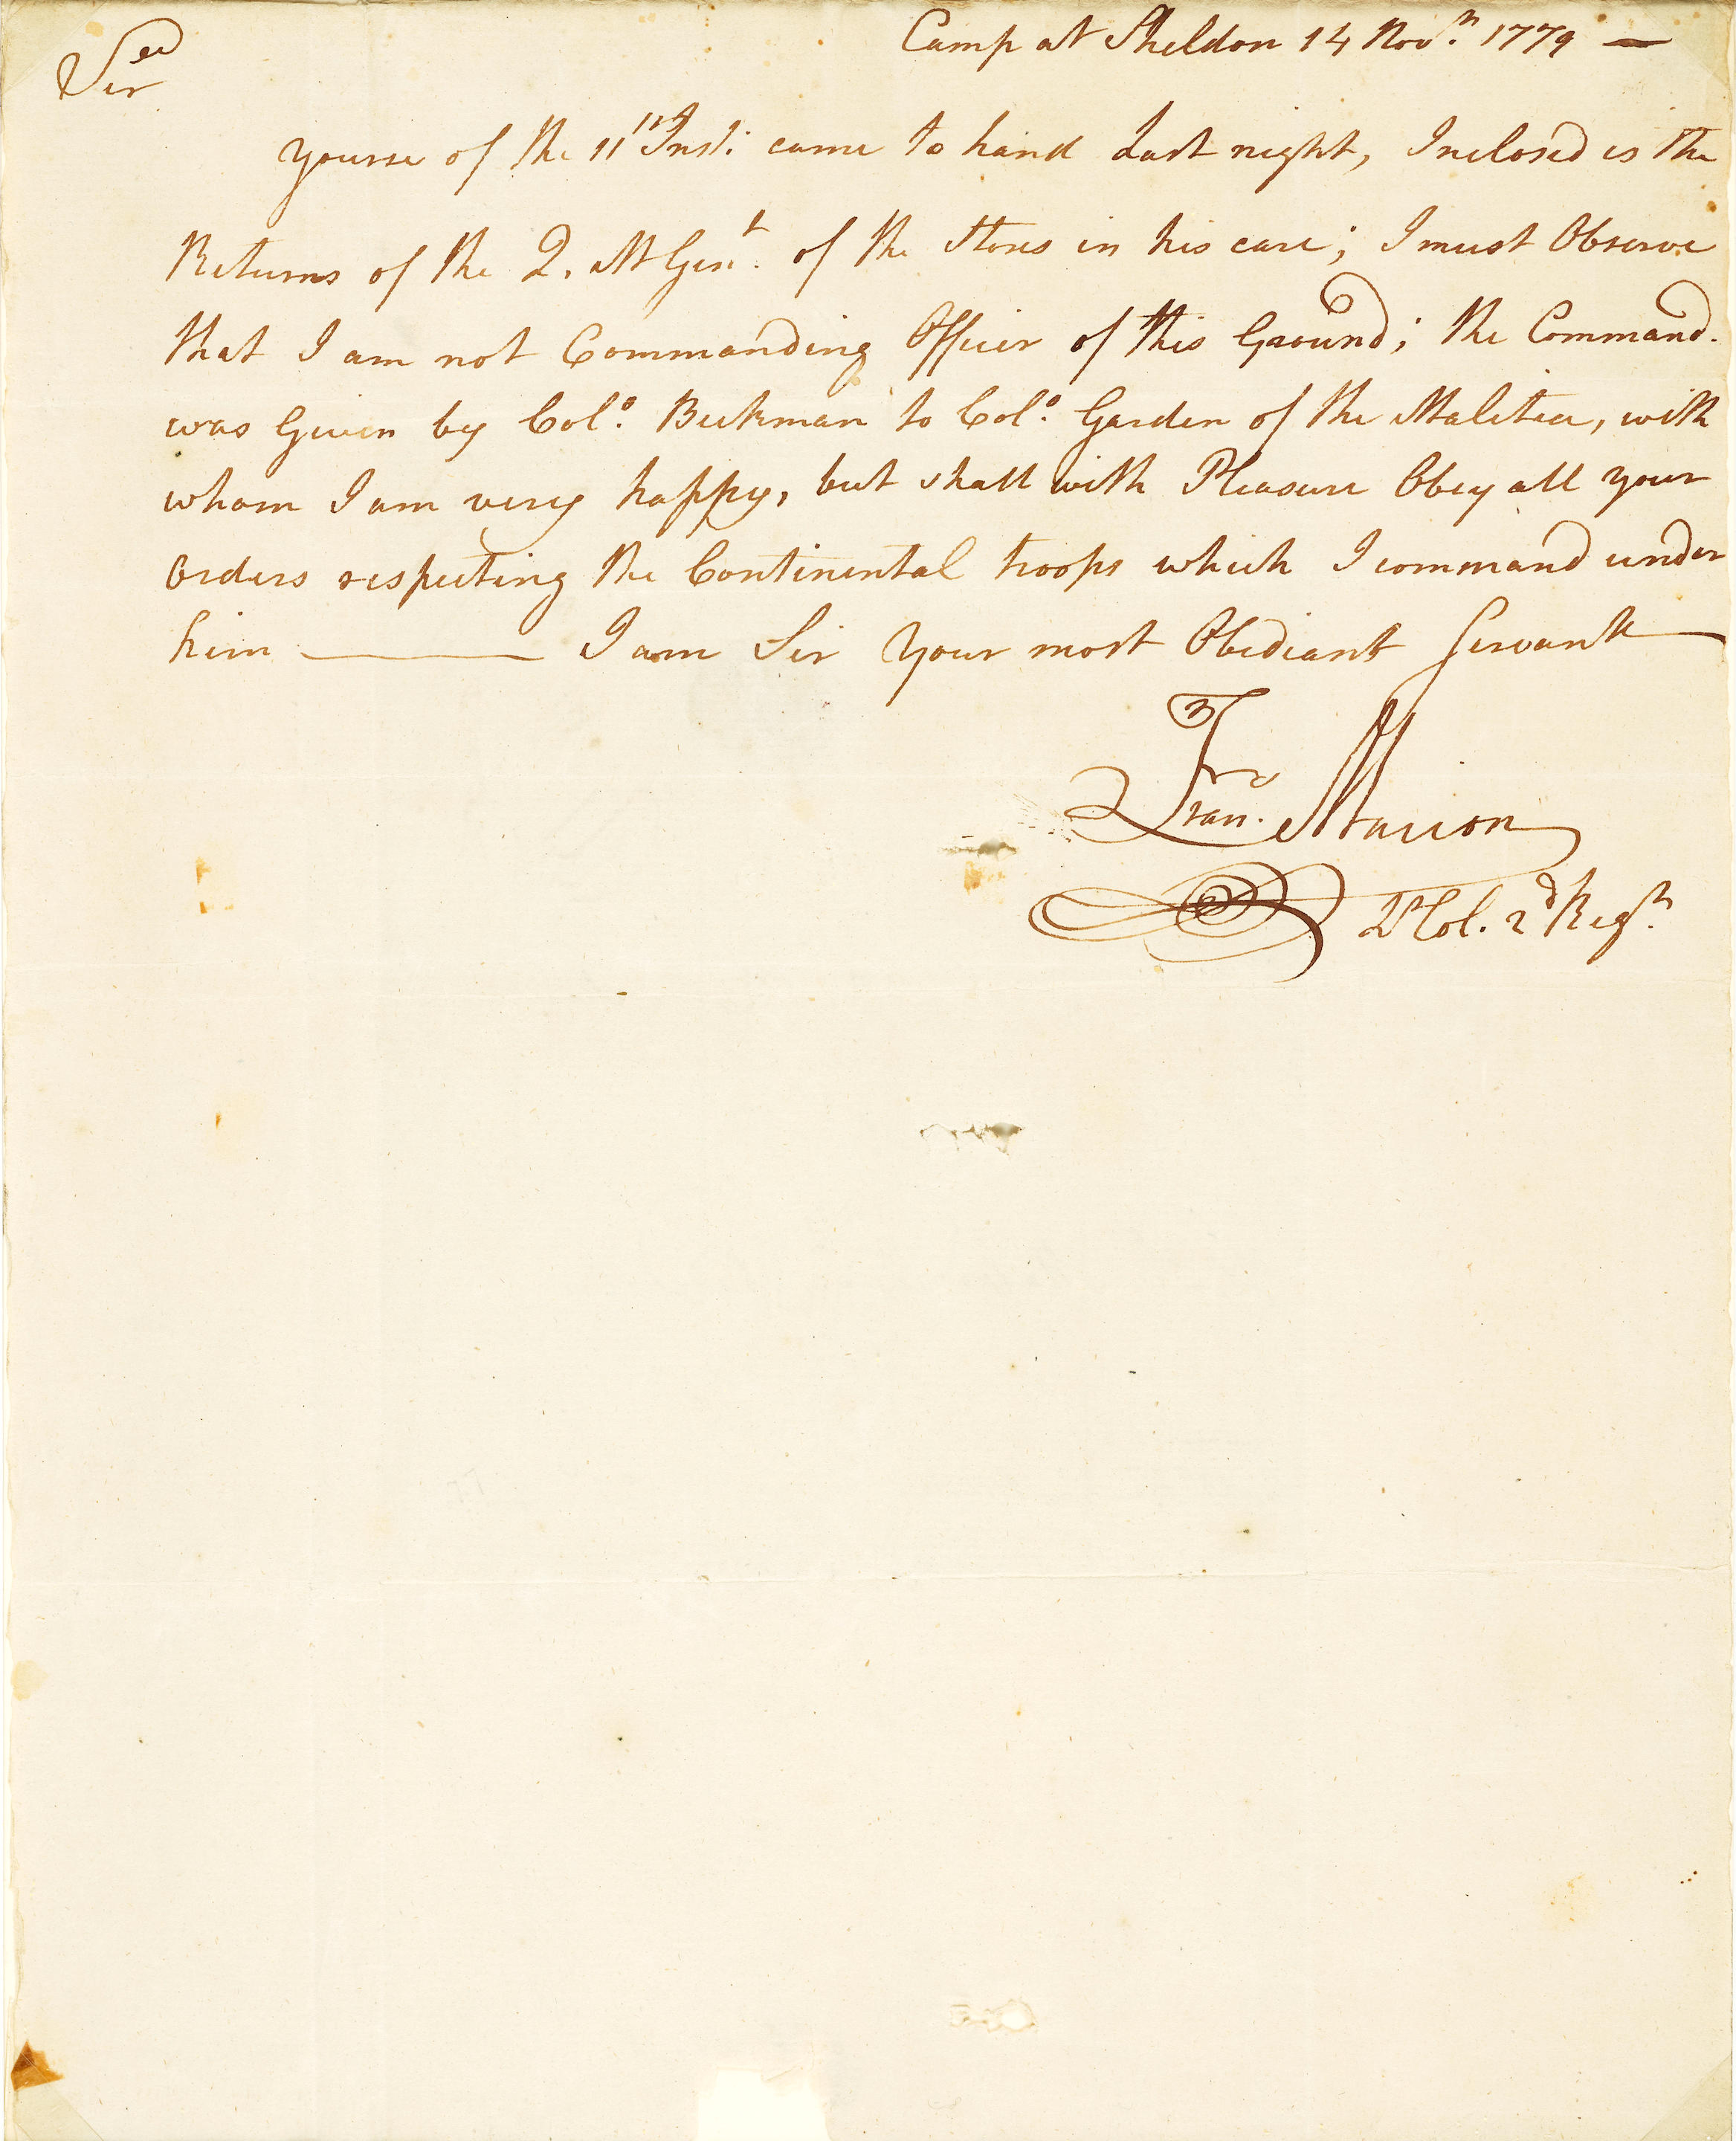 Camp at Sheldon 14 Nov.r 1779 —
Sir
Yourse of the 11th Inst: came to hand Last night, Inclosed is the
Returns of the Q. M Gen.l of the Stores in his care; I must Observe
that I am not Commanding Officer of this Ground; the Command.
was Given by Col.o Beekman to Col.o Garden of the Malitia, with
whom I am very happy, but shall with Pleasure Obey all your
Orders respecting the Continental troops which I command under
him ——— I am Sir Your most Obediant Servant
Fran. Marion
Lt Col. 2d Reg.t